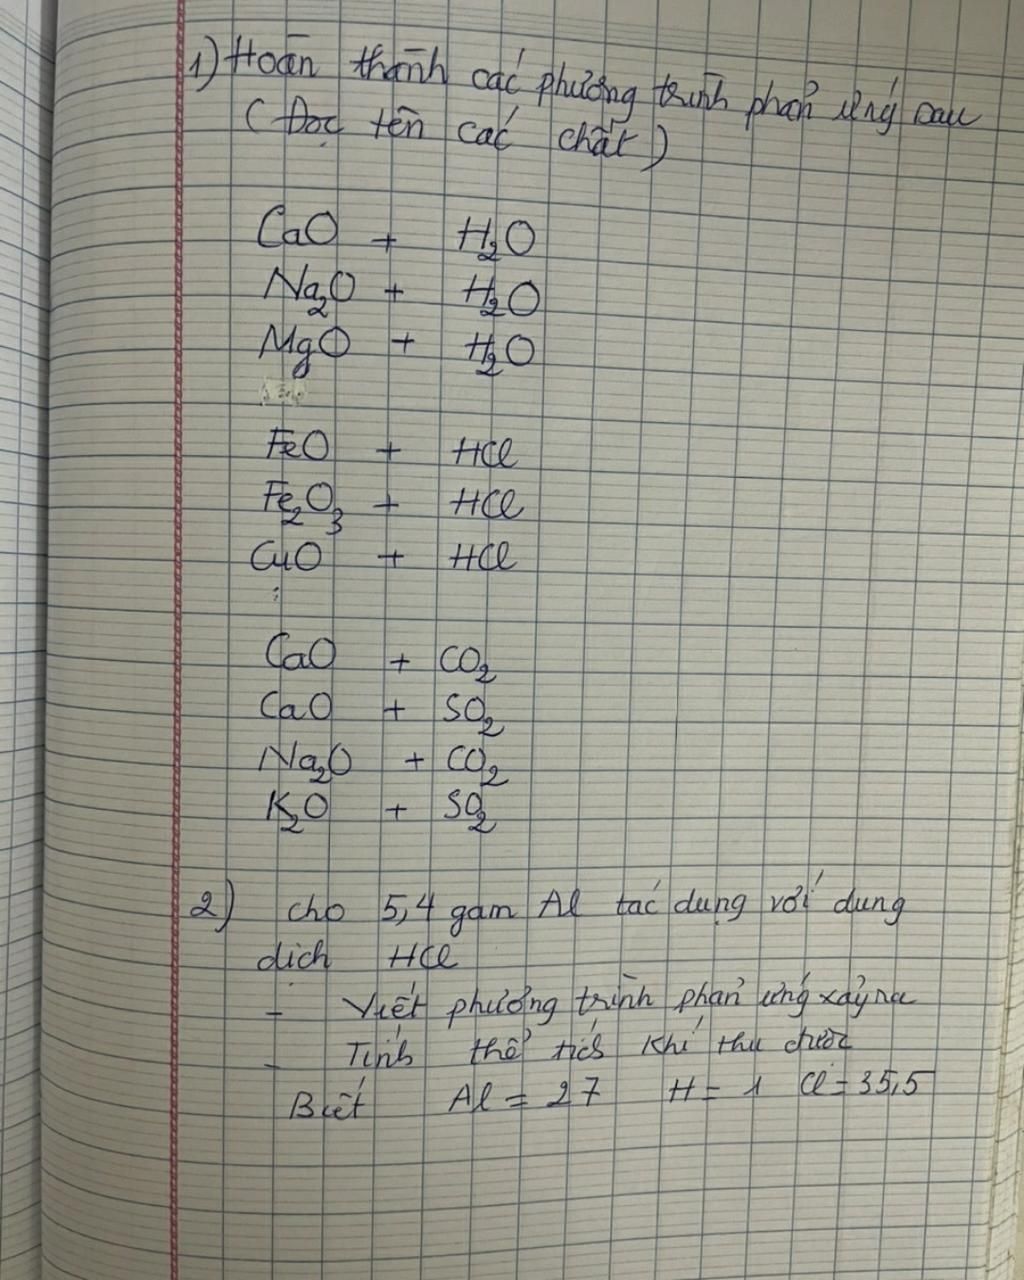 1) Hoàn thành các phương trình phản ứng sau
( Đọc tên các chất )
CaO + H₂O
Na₂O + H₂O
MgO + H₂O
FeO + HCl
Fe₂O₃ + HCl
CuO + HCl
:
CaO + CO₂
CaO + SO₂
Na₂O + CO₂
K₂O + SO₂
2) cho 5,4 gam Al tác dụng với dung
dịch HCl
- Viết phương trình phản ứng xảy ra
- Tính thể tích khí thu được
Biết Al = 27 H = 1 Cl = 35,5